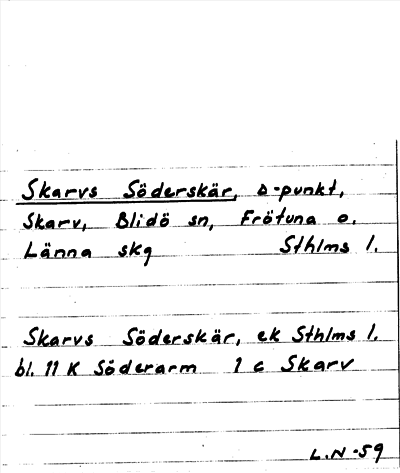 Skarvs Söderskär, Δ-punkt,
Skarv, Blidö sn, Frötuna o.
Länna skg Sthlms l.
Skarvs Söderskär, ek Sthlms l.
bl. 11 K Söderarm 1 c Skarv
L.N-59